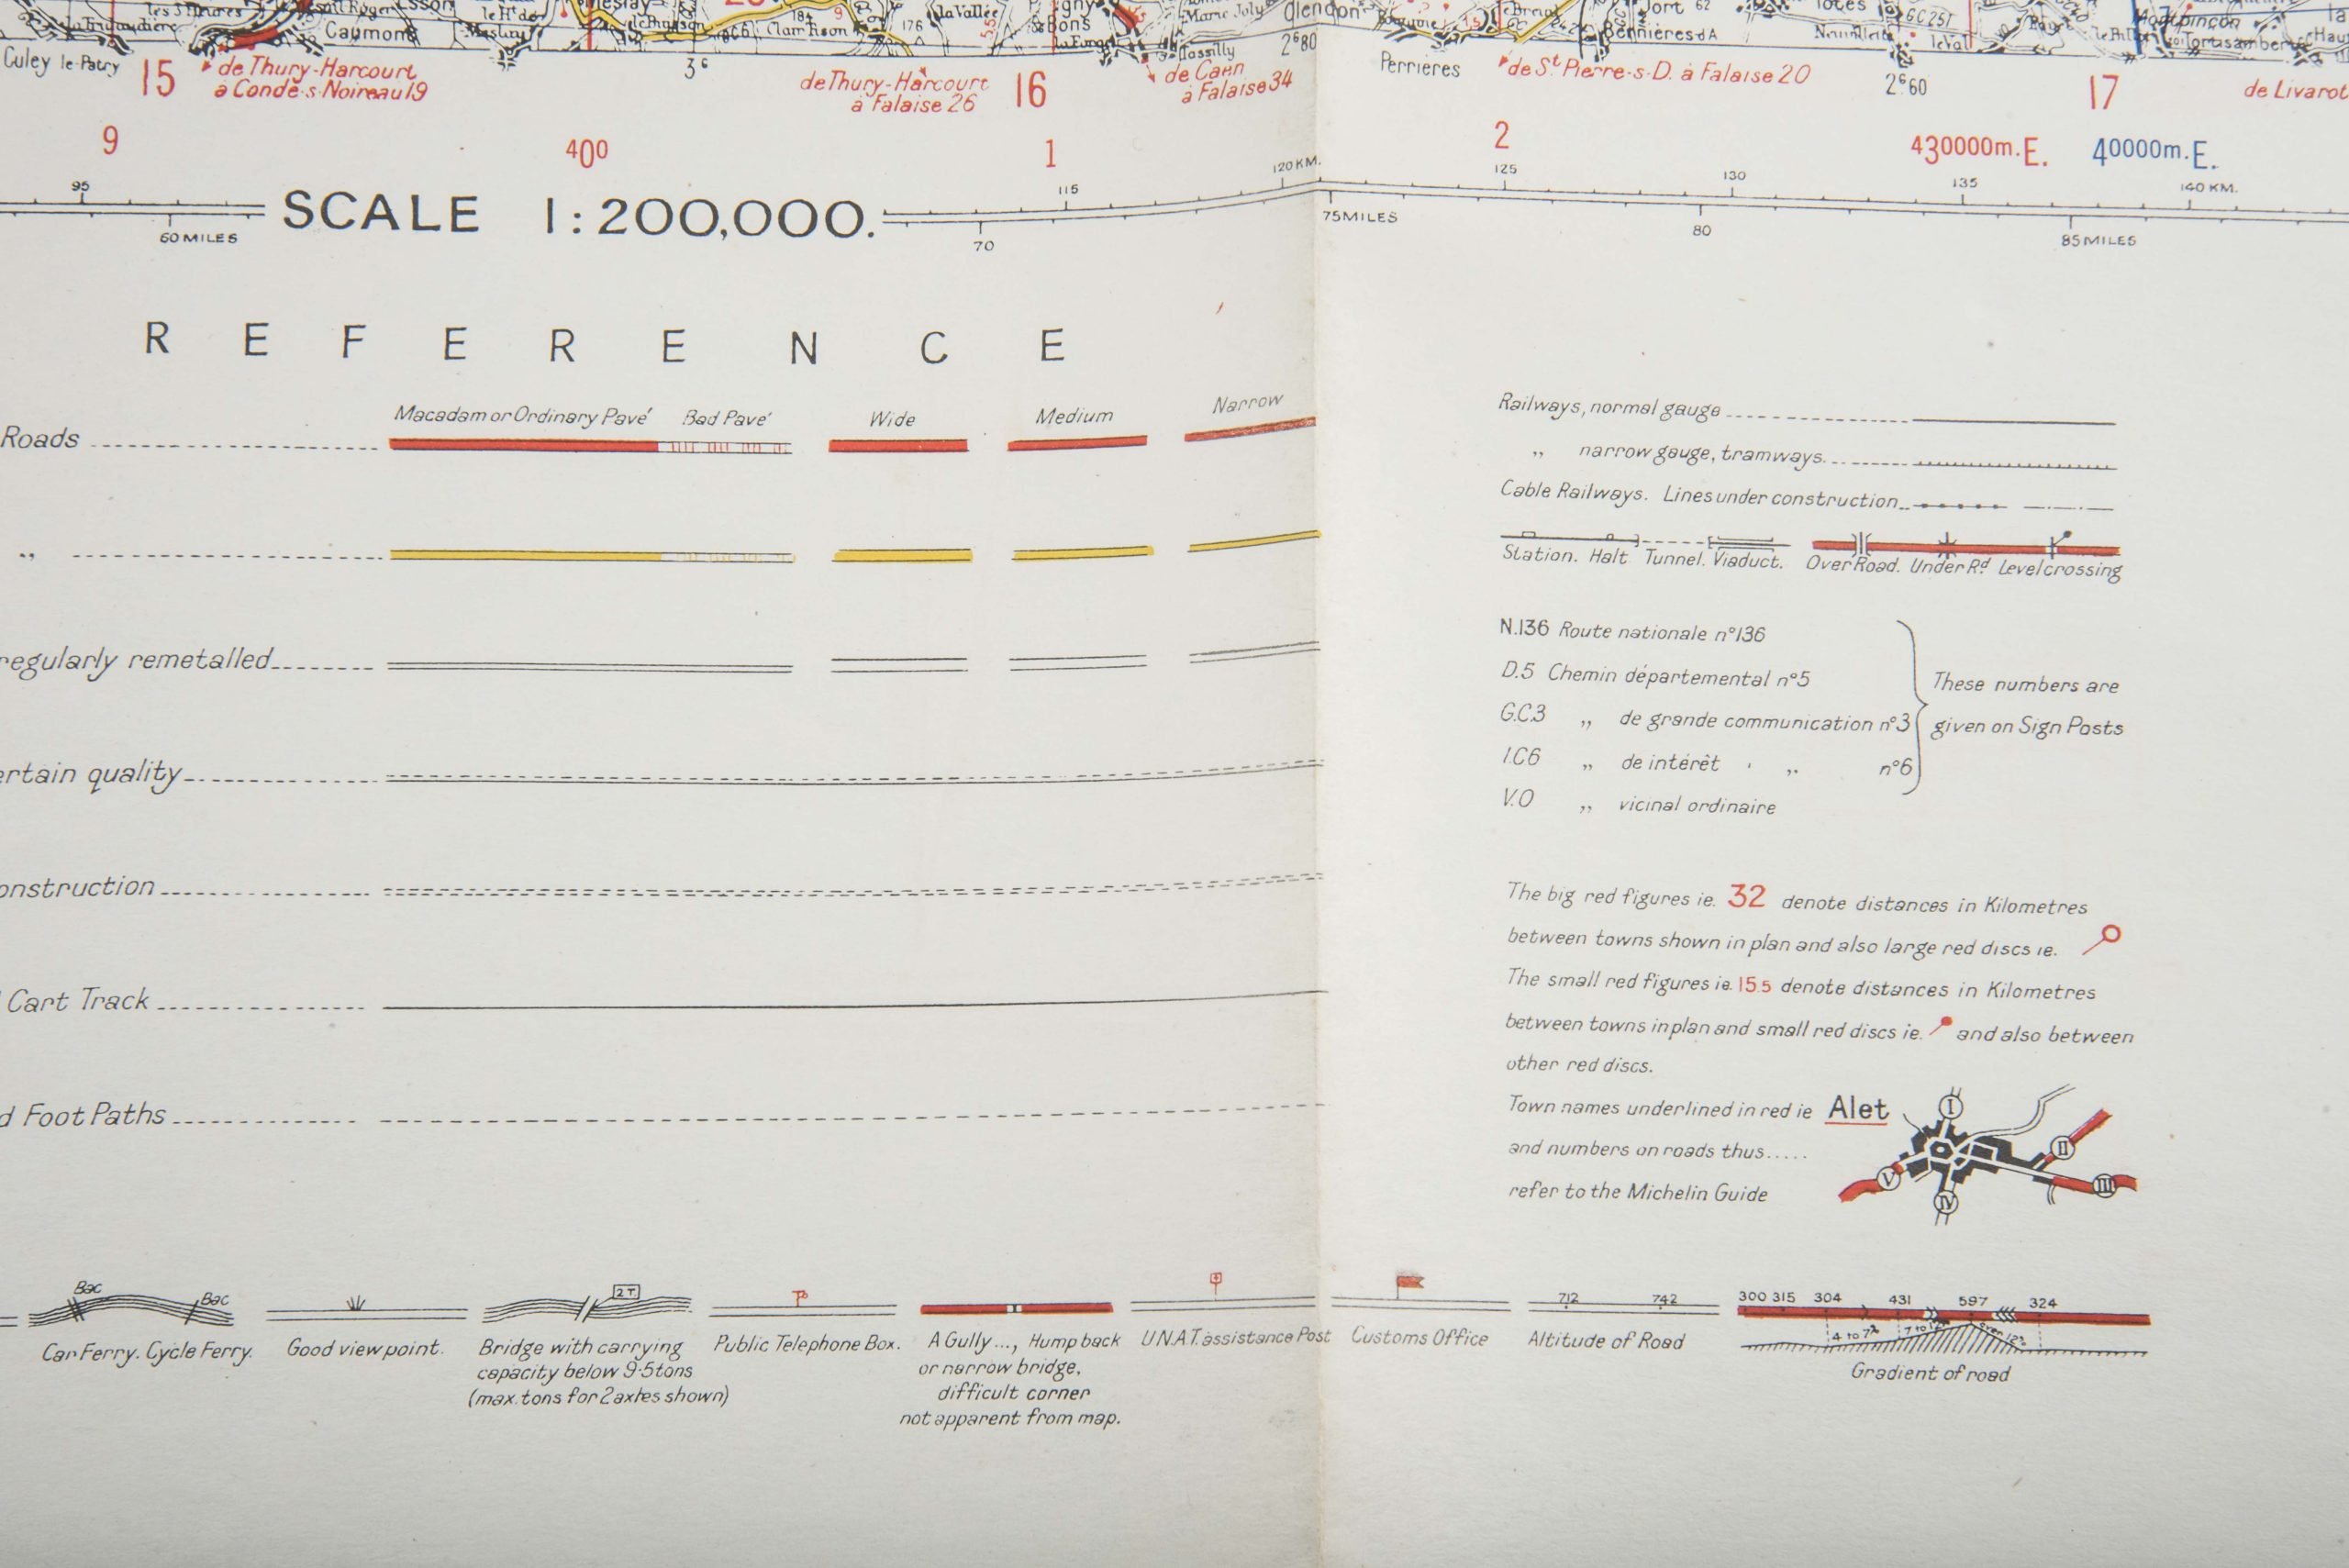 les 3 Maries
Caumont
la Vallée
Bons
Marie Joly
Olendon
Jort 62
GC251
Montpinçon
Culey le Patry
15
de Thury-Harcourt
à Condé-s-Noireau 19
3⁶
Clair Tison
176
de Thury-Harcourt
à Falaise 26
16
Tassilly
de Caen
à Falaise 34
2⁶80
Perrières
de St Pierre-s-D. à Falaise 20
Bernières-d'A
2⁶60
leVal
17
Tortisambert
de Livarot
9
400
1
2
430000m.E.
40000m.E.
95
115
120 KM.
125
130
135
140 KM.
SCALE 1:200,000.
60 MILES
70
75 MILES
80
85 MILES
REFERENCE
Macadam or Ordinary Pavé
Bad Pavé
Wide
Medium
Narrow
Roads
,,
regularly remetalled
ertain quality
onstruction
Cart Track
d Foot Paths
Railways, normal gauge
,, narrow gauge, tramways.
Cable Railways. Lines under construction
Station. Halt Tunnel. Viaduct. Over Road. Under Rd Level crossing
N.136 Route nationale n°136
D.5 Chemin départemental n°5
G.C.3 ,, de grande communication n°3
I.C6 ,, de intérêt ,, n°6
V.O ,, vicinal ordinaire
These numbers are
given on Sign Posts
The big red figures ie. 32 denote distances in Kilometres
between towns shown in plan and also large red discs ie.
The small red figures ie. 15.5 denote distances in Kilometres
between towns in plan and small red discs ie. and also between
other red discs.
Town names underlined in red ie Alet
and numbers on roads thus.....
refer to the Michelin Guide
I
II
III
IV
V
Bac
Bac
Car Ferry. Cycle Ferry.
Good view point.
2 T
Bridge with carrying
capacity below 9·5 tons
(max. tons for 2 axles shown)
Public Telephone Box.
A Gully..., Hump back
or narrow bridge,
difficult corner
not apparent from map.
U.N.A.T. assistance Post
Customs Office
712 742
Altitude of Road
300 315 304 431 597 324
4 to 7% 7 to 12% over 12%
Gradient of road